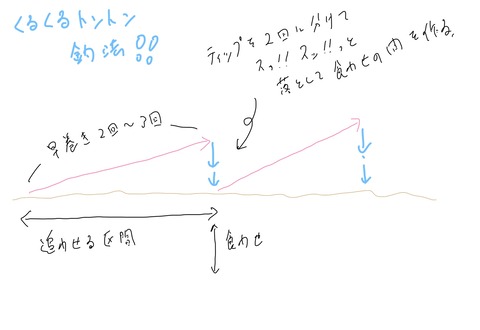 くるくるトントン
釣法!!
ティップを2回に分けて
スッ!! スン!!っと
落として食わせの間を作る。
早巻き2回～3回
追わせる区間
食わせ